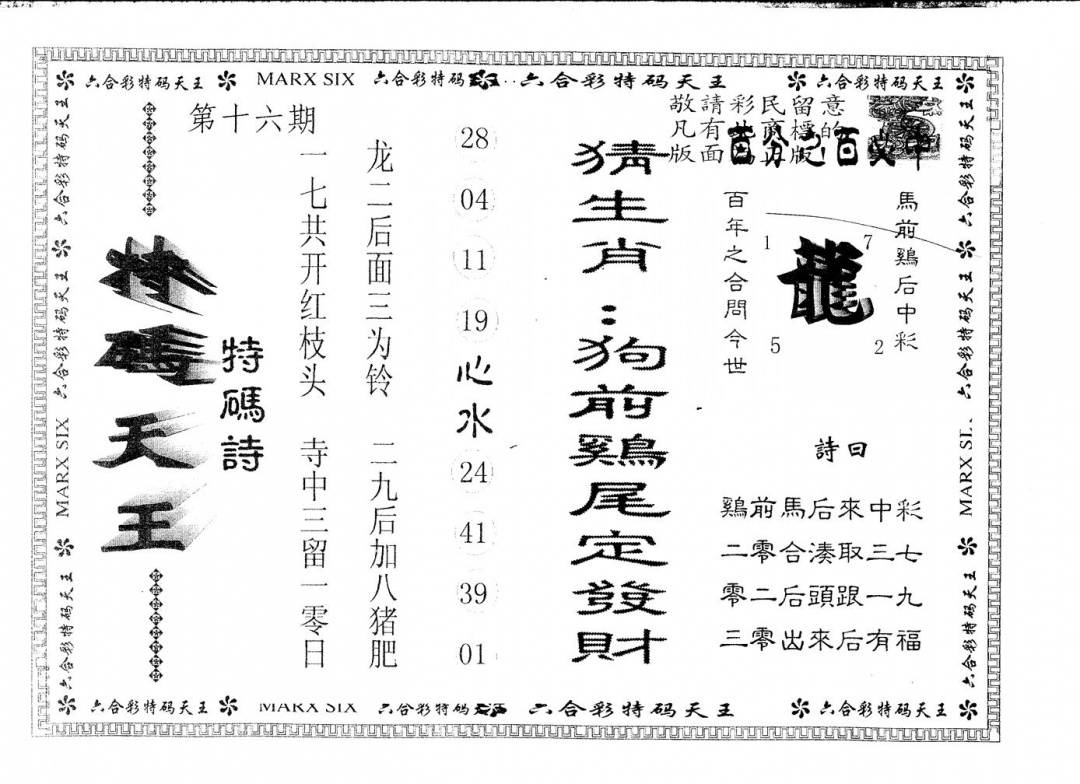 六合彩特码天王 MARX SIX 六合彩特码 六合彩特码天王 六合彩特码天王
敬請彩民留意
凡有
版面
版
的
百
中
第十六期
馬前鷄后中彩
龍
1
7
5
2
百年之合問今世
詩曰
鷄前馬后來中彩
二零合湊取三七
零二后頭跟一九
三零出來后有福
猜生肖:狗前鷄尾定發財
28
04
11
19
心水
24
41
39
01
龙二后面三为铃 二九后加八猪肥
一七共开红枝头 寺中三留一零日
特碼詩
特碼天王
六合彩特码天王 六合彩特码天王 MARX SIX 六合彩特码天王
六合彩特码天王 六合彩特码天王 MARX SI 六合彩特码天王
六合彩特码天王 MARX SIX 六合彩特码天王 六合彩特码天王 六合彩特码天王